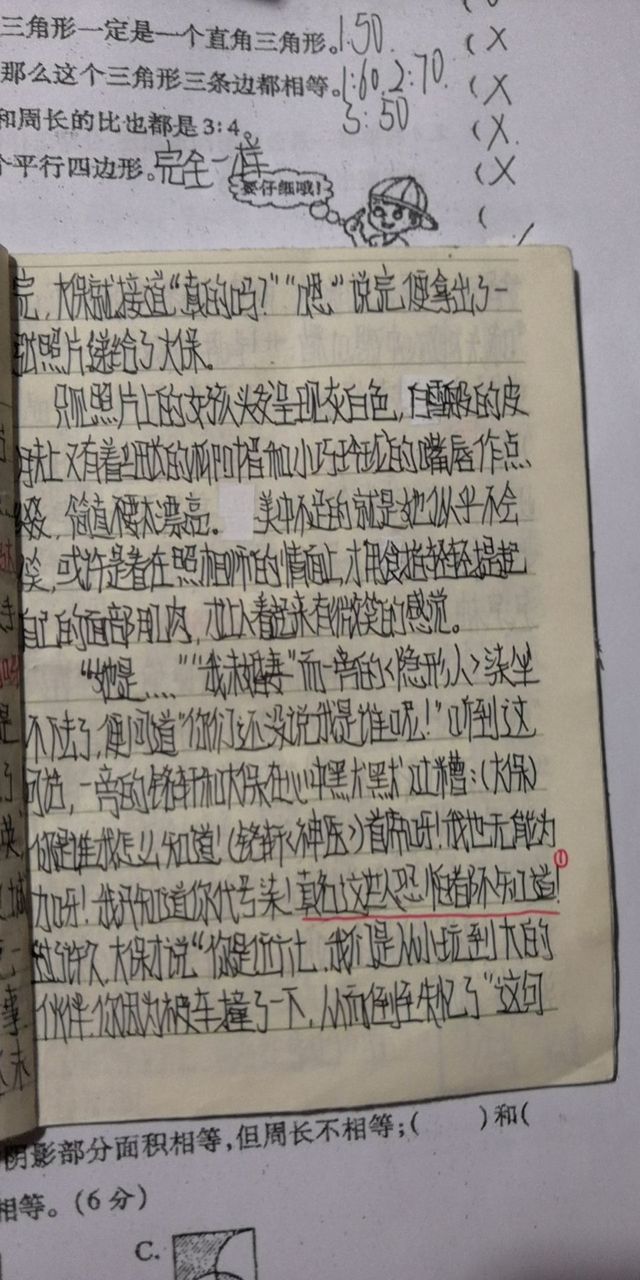 三角形一定是一个直角三角形。1:50
(×
那么这个三角形三条边都相等。1:60.2:70.
(×
和周长的比也都是3:4。3:50
(×
个平行四边形。完全一样
(×
要仔细哦!
(
完,大保就接道“真的吗?”“嗯”说完便拿出了一
张照片递给了大保。
只见照片上的女孩头发呈现灰白色,白雪般的皮
肤上又有着细致的柳叶眉和小巧玲珑的嘴唇作点
缀,简直不要太漂亮。美中不足的就是她似乎不会
笑,或许是看在照相师的情面上,才用食指轻轻提起
自己的面部肌肉,才让人看起来有微笑的感觉。
“她是....”“我未婚妻”而一旁的<隐形人>染坐
不下去了,便问道“你们还没说我是谁呢!”听到这
句话,一旁的铭轩和大保在心中默默吐槽:(大保)
你是谁我怎么知道!(铭轩<神医>)首席呀!我也无能为
力呀!我只知道你代号染!真名这些人恐怕都不知道!①
过许久,大保才说“你是伍方让,我们是从小玩到大的
伙伴.你因为被车撞了一下,从而倒至失忆了”这句
阴影部分面积相等,但周长不相等;( )和(
相等。(6分)
C.